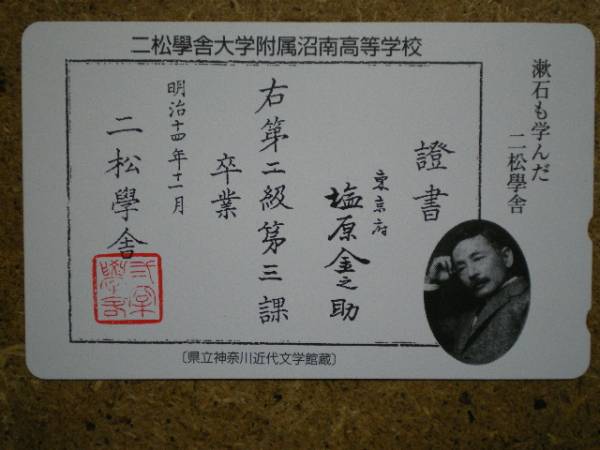 二松學舎大学附属沼南高等学校
漱石も学んだ
二松學舎
證書
東京府
塩原金之助
右第二級第三課
卒業
明治十四年十一月
二松學舎
〔県立神奈川近代文学館蔵〕